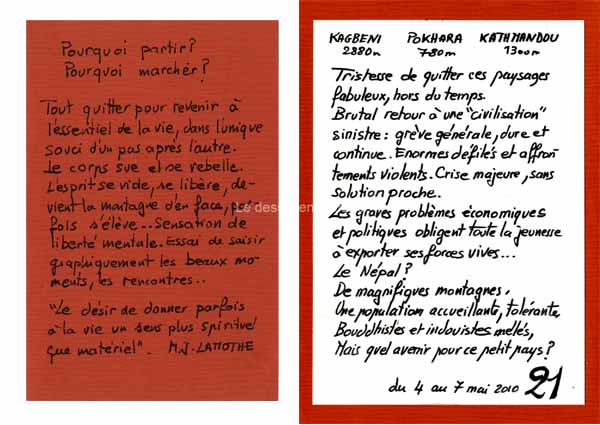 Pourquoi partir?
Pourquoi marcher?
Tout quitter pour revenir à
l'essentiel de la vie, dans l'unique
souci d'un pas après l'autre.
Le corps sue et se rebelle.
L'esprit se vide, se libère, de-
vient la montagne d'en face, par-
fois s'élève.. Sensation de
liberté mentale. Essai de saisir
graphiquement les beaux mo-
ments, les rencontres..
"Le désir de donner parfois
à la vie un sens plus spirituel
que matériel". M.J. LAMOTHE
KAGBENI POKHARA KATHMANDOU
2880m 780m 1300m
Tristesse de quitter ces paysages
fabuleux, hors du temps.
Brutal retour à une "civilisation"
sinistre: grève générale, dure et
continue. Enormes défilés et affron-
tements violents. Crise majeure, sans
solution proche..
Les graves problèmes économiques
et politiques obligent toute la jeunesse
à exporter ses forces vives...
Le Népal?
De magnifiques montagnes.
Une population accueillante, tolérante,
Bouddhistes et indouistes mêlés,
Mais quel avenir pour ce petit pays?
du 4 au 7 mai 2010 21